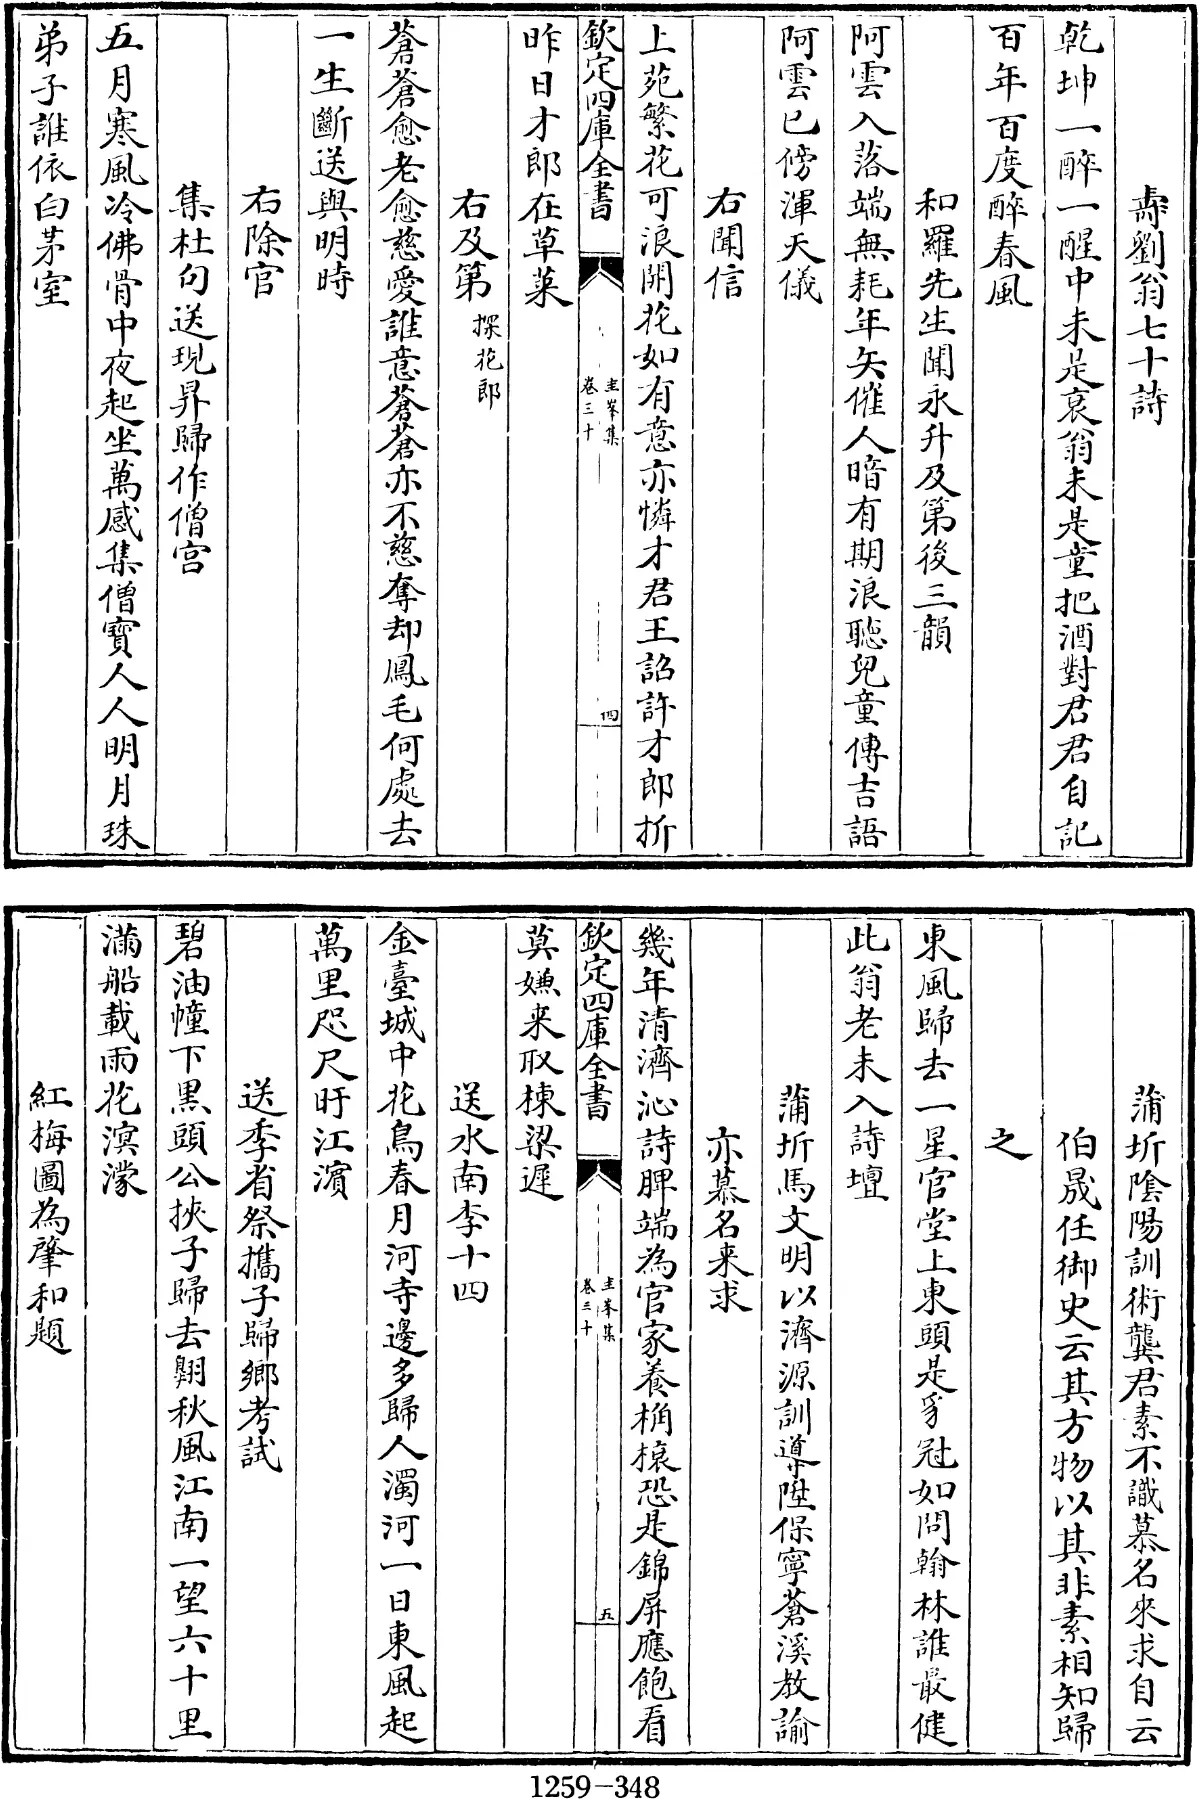 壽劉翁七十詩
乾坤一醉一醒中未是衰翁未是童把酒對君君自記
百年百度醉春風
和羅先生聞永升及第後三韻
阿雲入落端無耗年矢催人暗有期浪聴兒童傳吉語
阿雲已傍渾天儀
右聞信
上苑繁花可浪開花如有意亦憐才君王詔許才郎折
欽定四庫全書
圭峯集
卷三十
四
昨日才郎在草萊
右及第 探花郎
蒼蒼愈老愈慈愛誰意蒼蒼亦不慈奪却鳳毛何處去
一生斷送與明時
右除官
集杜句送現昇歸作僧宫
五月寒風冷佛骨中夜起坐萬感集僧寳人人明月珠
弟子誰依白茅室
蒲圻隂陽訓術龔君素不識慕名來求自云
伯晟任御史云其方物以其非素相知歸
之
東風歸去一星官堂上東頭是豸冠如問翰林誰最健
此翁老未入詩壇
蒲圻馬文明以濟源訓導陞保寧蒼溪教諭
亦慕名来求
幾年清濟沁詩脾端為官家養桷榱恐是錦屏應飽看
欽定四庫全書
圭峯集
卷三十
五
莫嫌来取棟梁遲
送水南李十四
金臺城中花鳥春月河寺邊多歸人濁河一日東風起
萬里咫尺盱江濱
送季省祭攜子歸鄉考試
碧油幢下黒頭公挾子歸去翺秋風江南一望六十里
滿船載雨花溟濛
紅梅圖為肇和題
1259-348